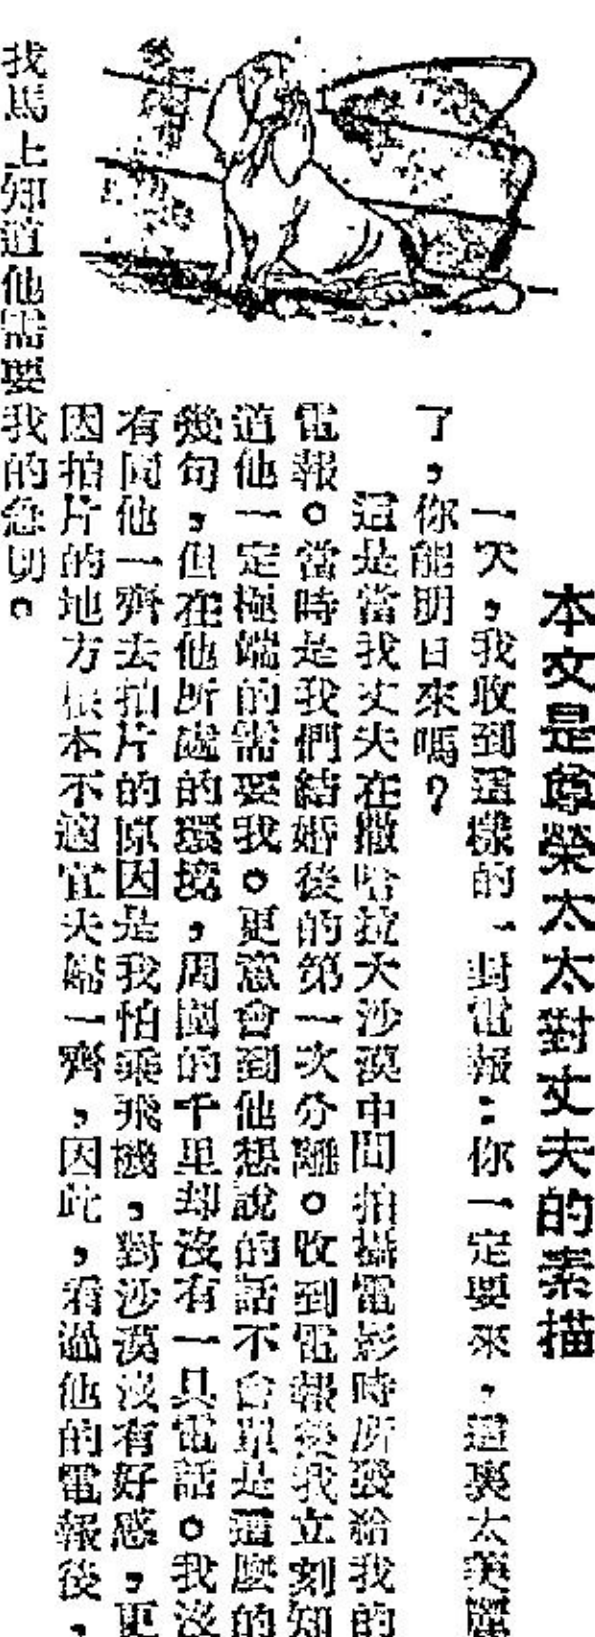 本文是尊榮太太對丈夫的素描
一天，我收到這樣的一封電報：你一定要來，這裏太美麗
了，你能明日來嗎？
這是當我丈夫在撒哈拉大沙漠中間拍攝電影時所發給我的
電報。當時是我們結婚後的第一次分離。收到電報後我立刻知
道他一定極端的需要我。更意會到他想說的話不會單是這麼的
幾句，但在他所處的環境，周圍的千里却沒有一具電話。我沒
有同他一齊去拍片的原因是我怕乘飛機，對沙漠沒有好感，更
因拍片的地方根本不適宜夫婦一齊，因此，看過他的電報後，
我馬上知道他需要我的急切。